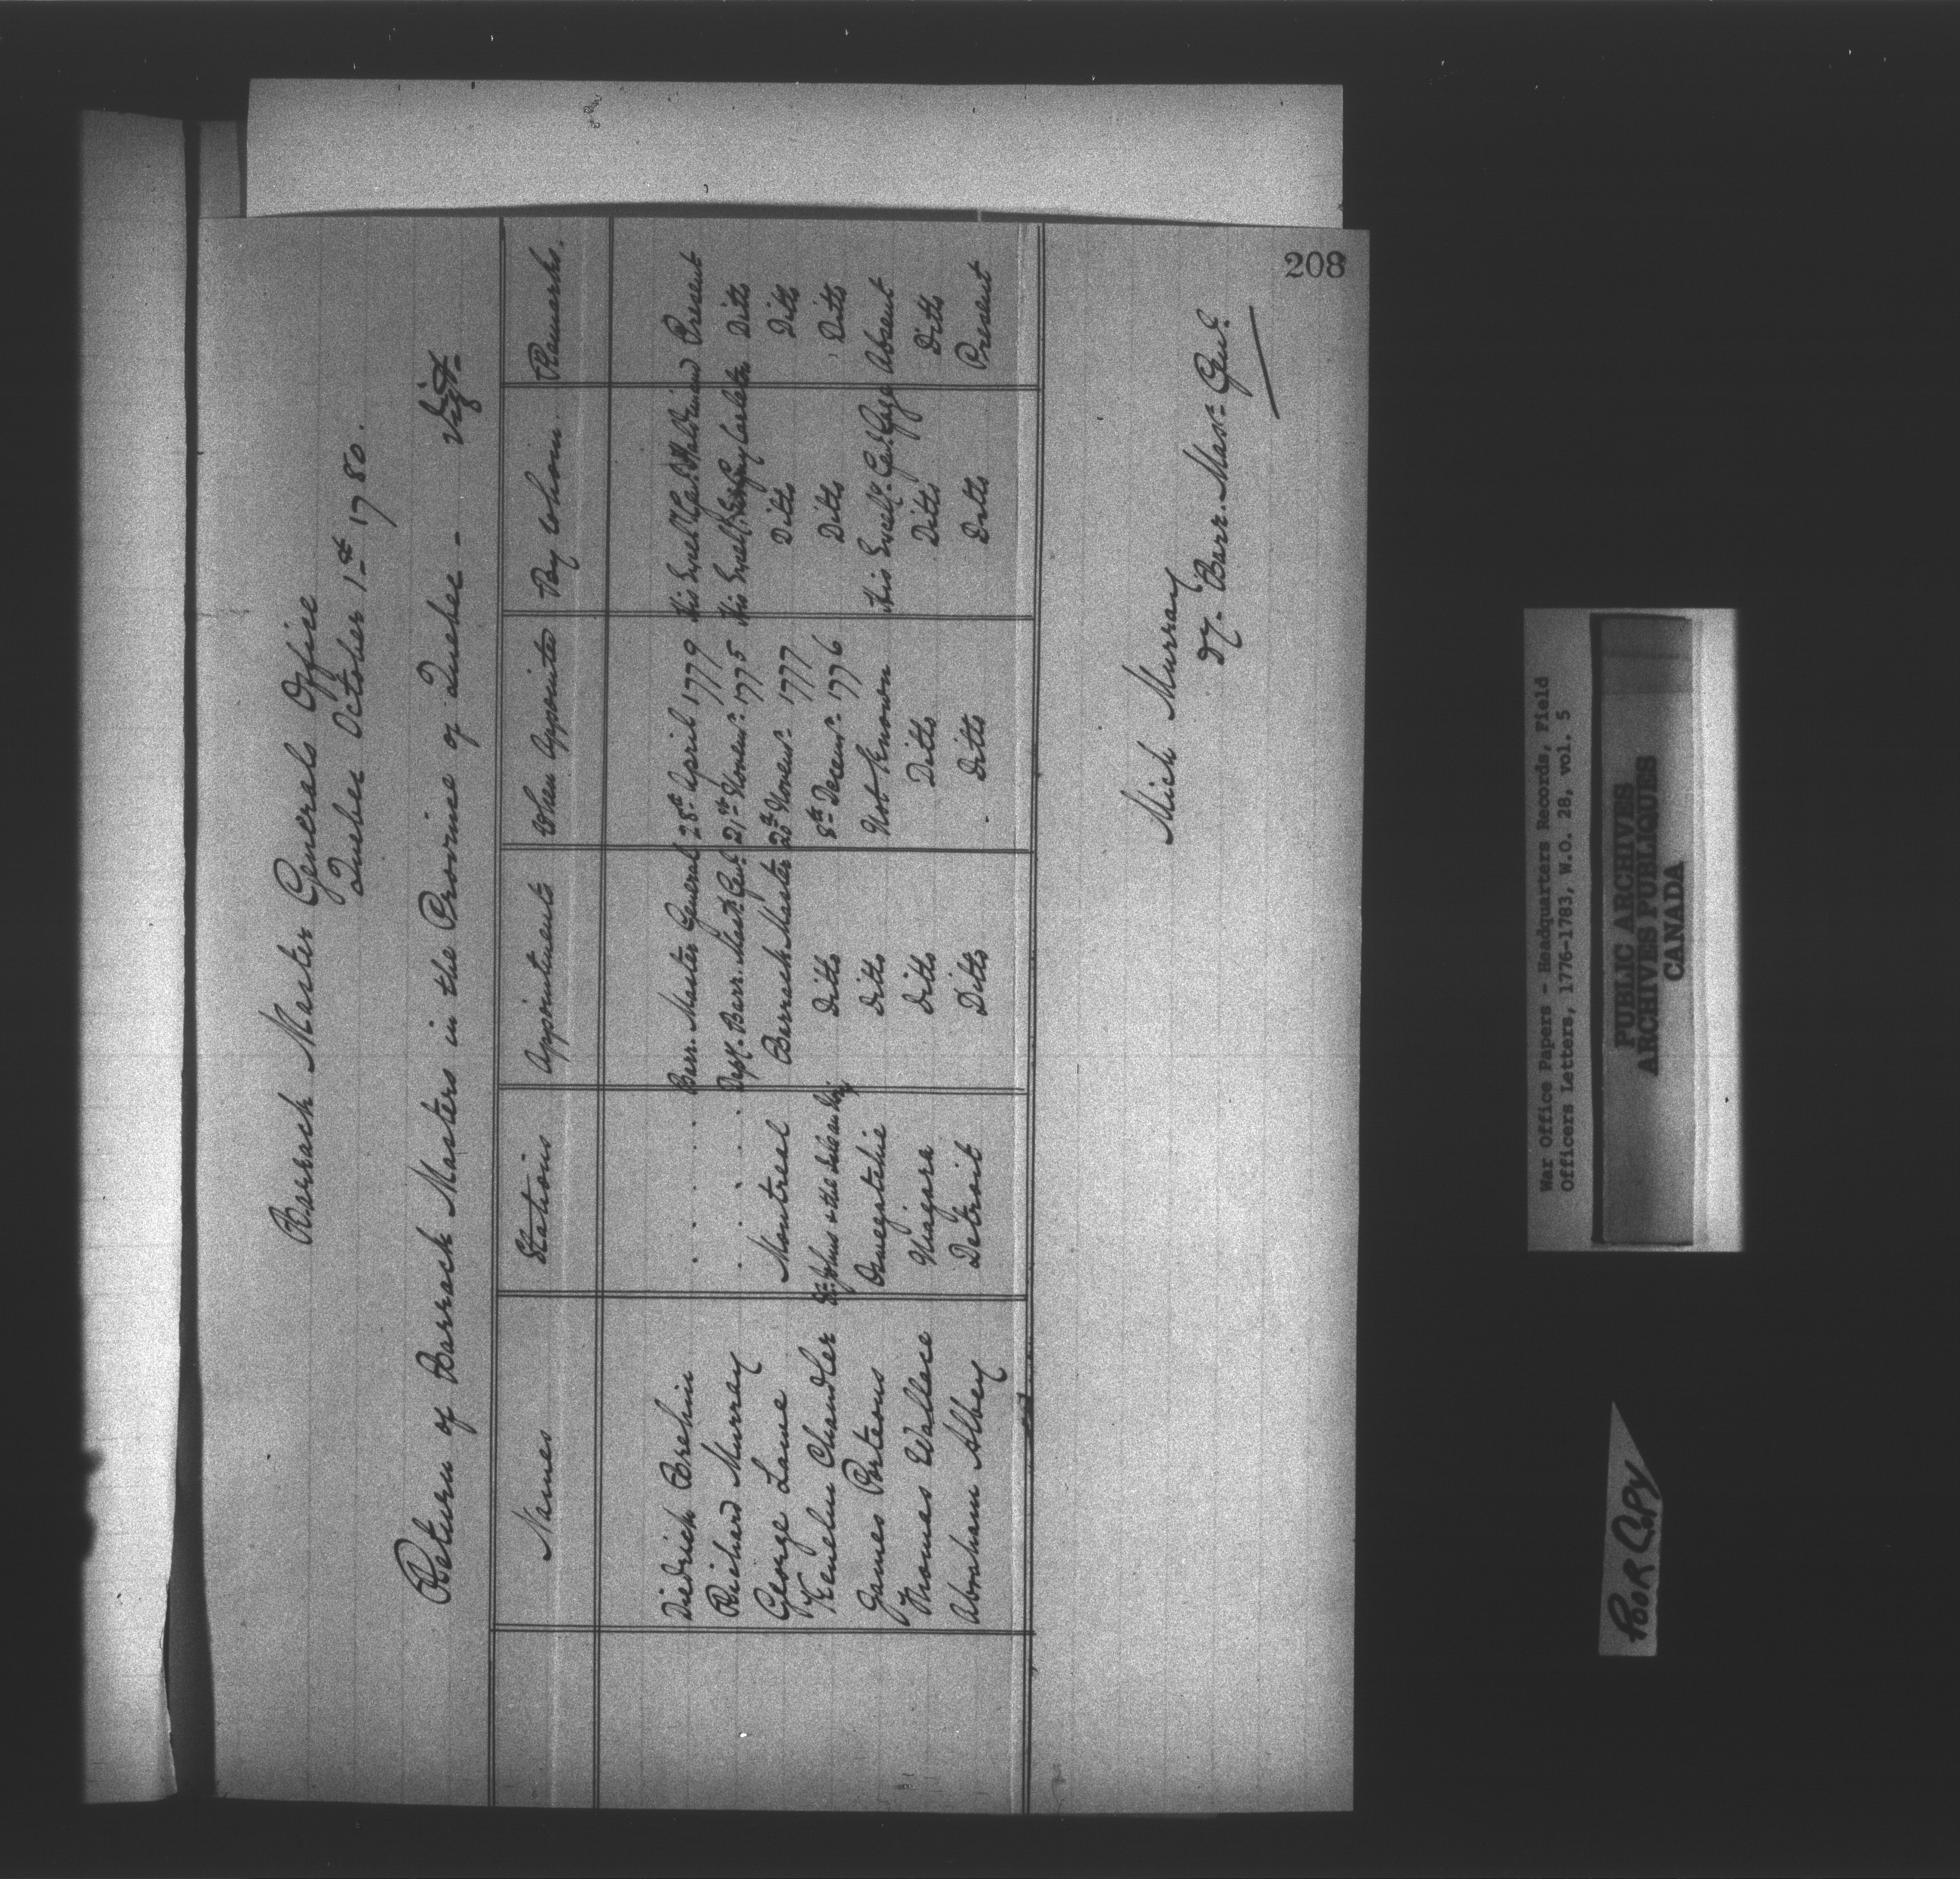 Barrack Master Generals Office
Quebec October 1st 1780.
Return of Barrack Masters in the Province of Quebec - Vizt.
Names Stations Appointments When Appointed By Whom. Remarks.
Diedrick Brehm . . . . . Barr. Master General 28th April 1779 His Excelly Genl Haldimand Present
Richard Murray . . . . . Depy. Barr. Mastr. Genl. 21st Novemr. 1775 His Excelly. Sir Guy Carleton Ditto
George Laws Montreal Barrack Master 20th Novemr. 1777 Ditto Ditto
Kenelm Chandler St. Johns & the Ditto 8th Decemr. 1776 Ditto Ditto
James Porteous Oswegatchie Ditto Not Known His Excelly. Genl. Gage Absent
Thomas Wallace Niagara Ditto Ditto Ditto Ditto
Abraham Abbey Detroit Ditto Ditto Ditto Present
Mich Murray
Dy. Barr. Masr. Genl.
208
War Office Papers - Headquarters Records, Field
Officers Letters, 1776-1783, W.O. 28, vol. 5
PUBLIC ARCHIVES
ARCHIVES PUBLIQUES
CANADA
POOR COPY